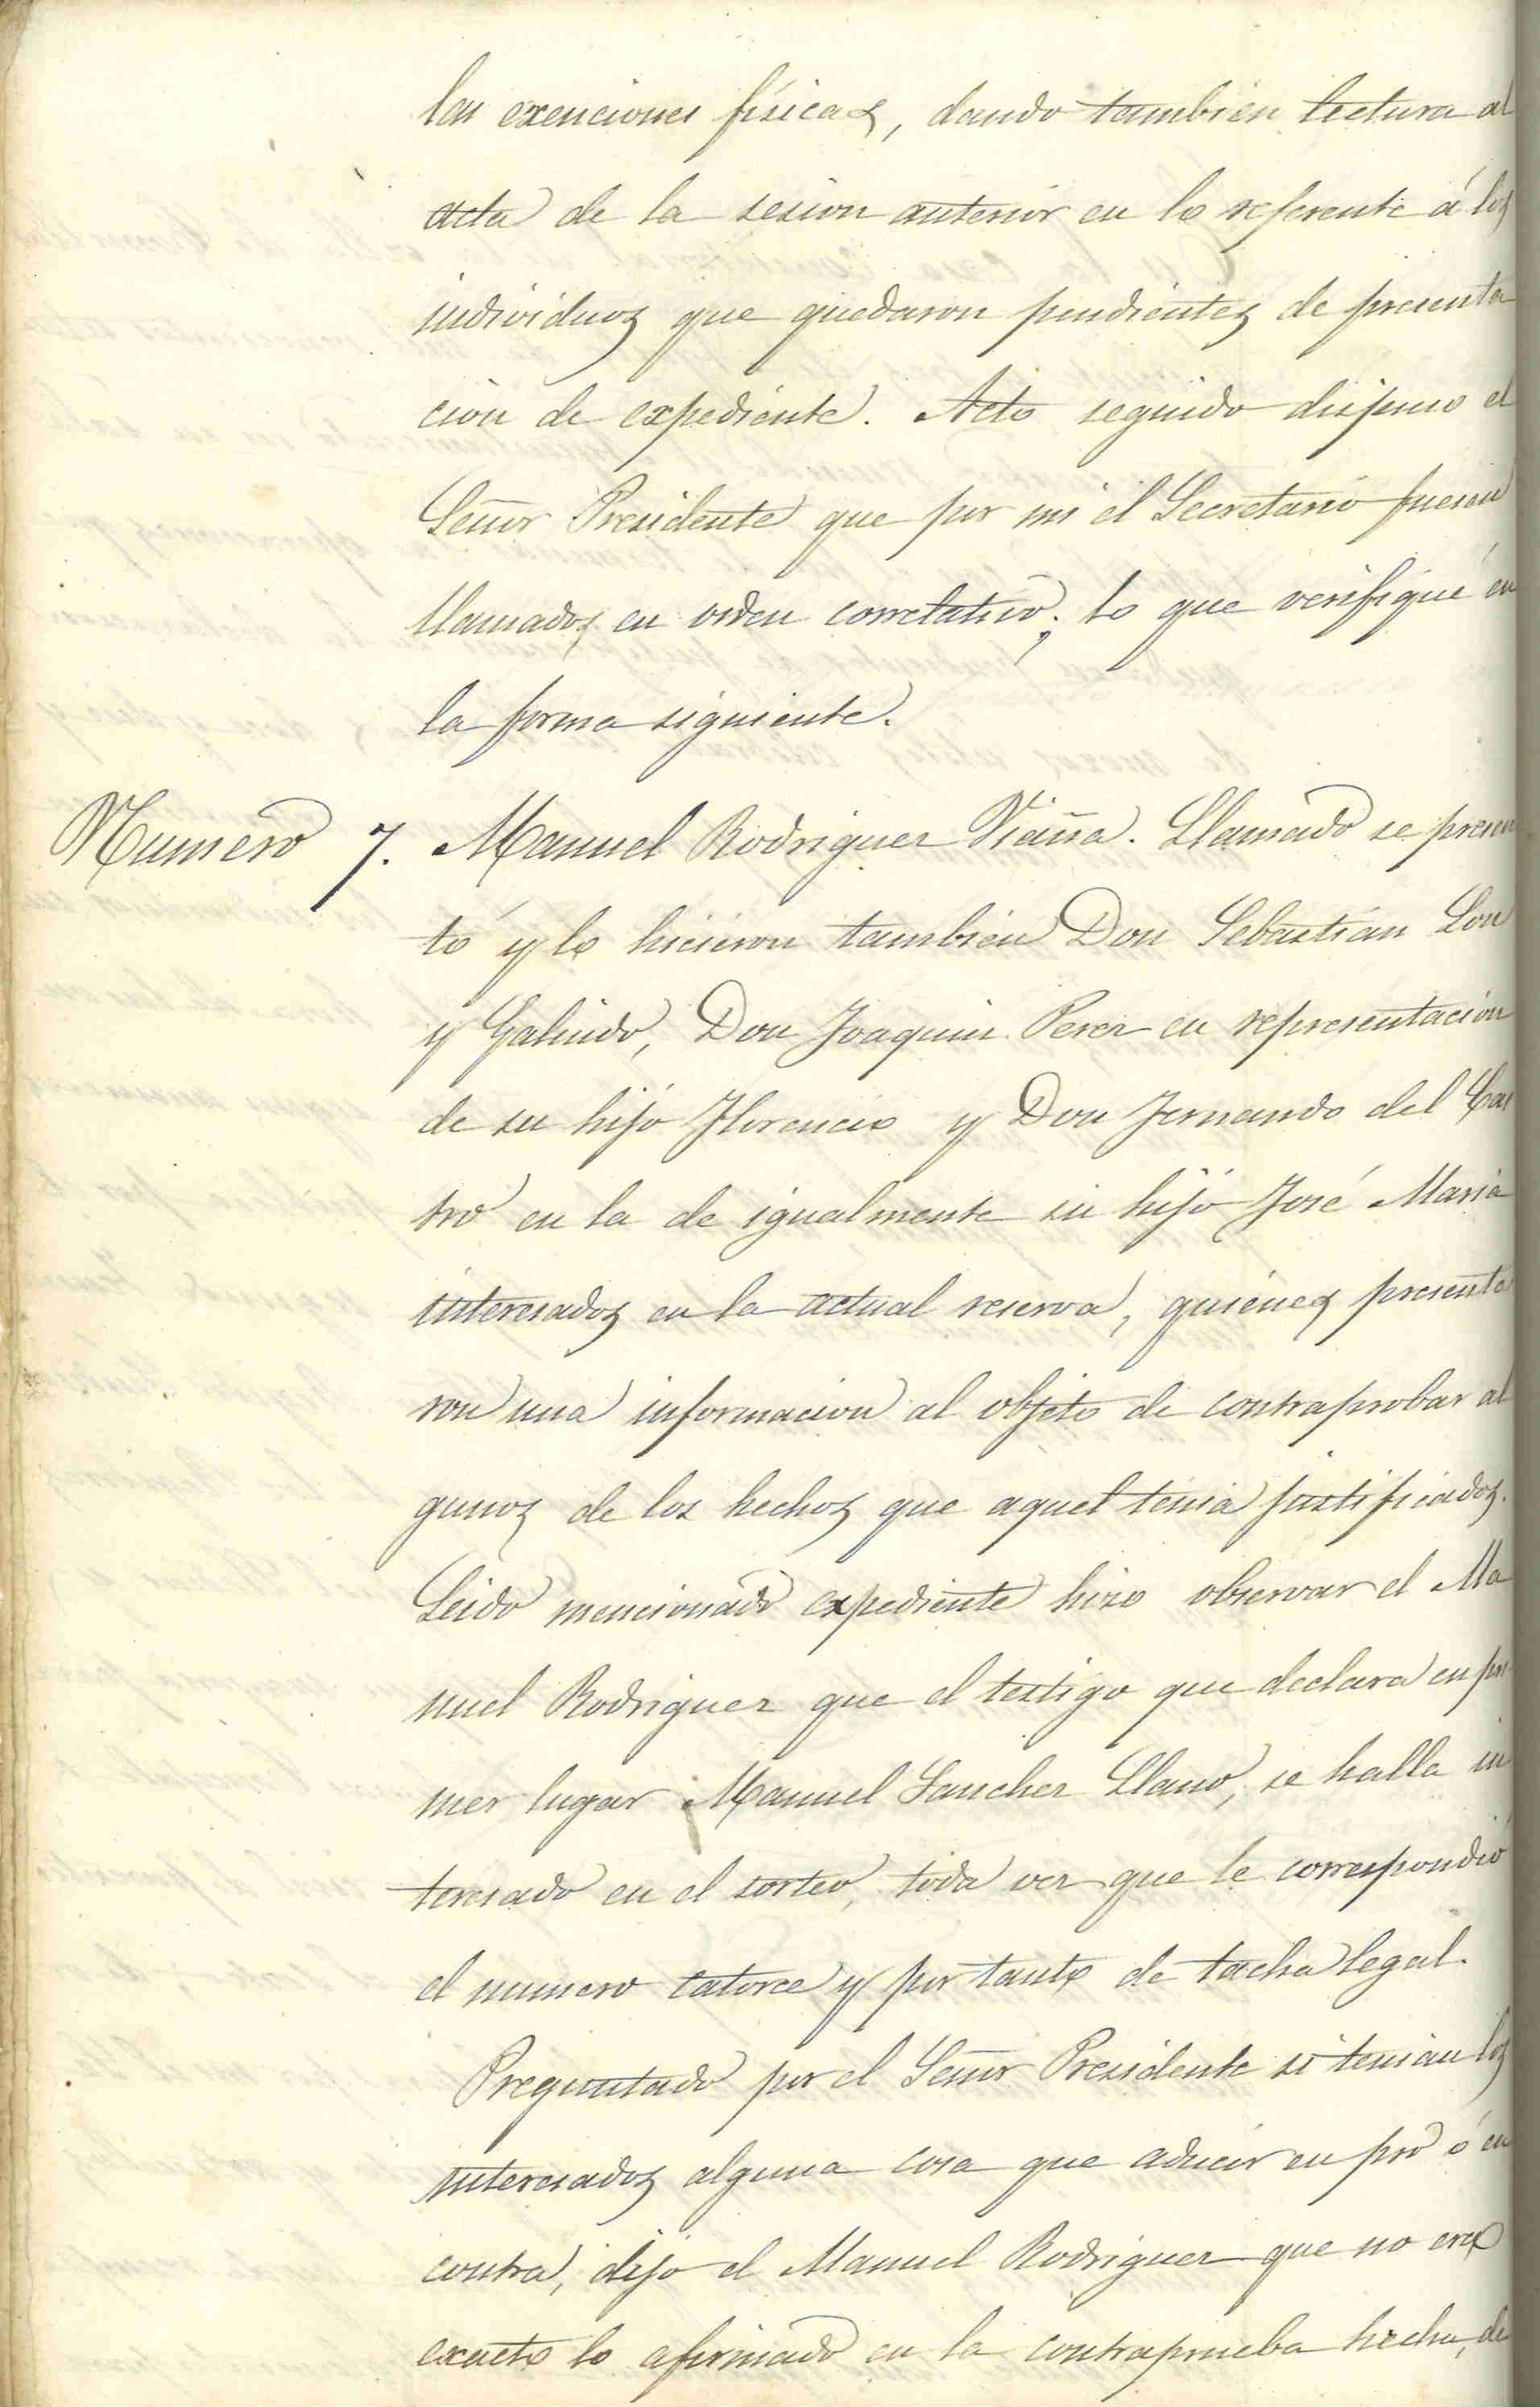 las exenciones físicas, dando tambien lectura al
acta de la sesion anterior en lo referente á los
individuos que quedaron pendientes de presenta
cion de expediente. Acto seguido dispuso el
Señor Presidente que por mi el Secretario fueran
llamados en orden correlativo; lo que verifiqué en
la forma siguiente.
Numero 7. Manuel Rodriguez Viaña. Llamado se presen
tó y lo hicieron tambien Don Sebastian Lon
y Galindo, Don Joaquin Perez en representacion
de su hijo Florencio y Don Fernando del Cas
tro en la de igualmente su hijo José Maria
interesados en la actual reserva, quienes presenta
ron una informacion al objeto de contraprobar al
gunos de los hechos que aquel tenia justificados.
Leido mencionado expediente hizo observar el Ma
nuel Rodriguez que el testigo que declara en pri
mer lugar Manuel Sanchez Llano, se halla in
teresado en el sorteo, toda vez que le correspondió
el numero catorce y por tanto de tacha legal.
Preguntado por el Señor Presidente si tenian los
interesados alguna cosa que aducir en pró ó en
contra, dijo el Manuel Rodriguez que no era
exacto lo afirmado en la contraprueba hecha, de